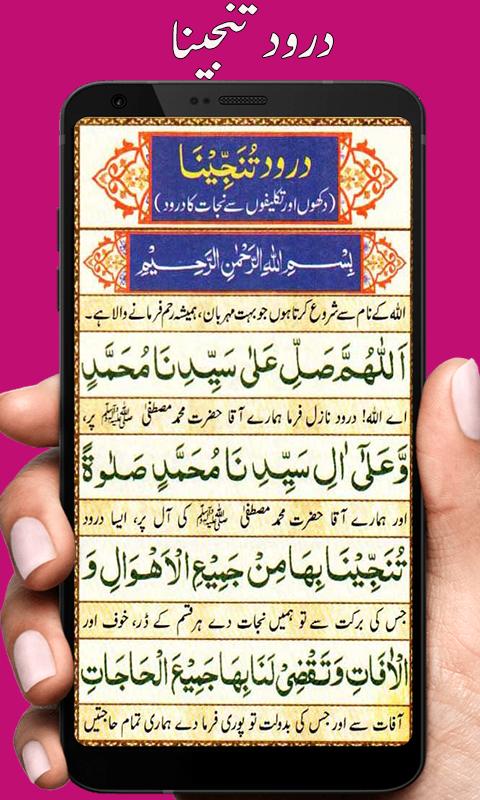 درود تنجینا
درود تُنَجِّيْنَا
(دکھوں اور تکلیفوں سے نجات کا درود)
بِسْمِ اللهِ الرَّحْمٰنِ الرَّحِيْمِ
اللہ کے نام سے شروع کرتا ہوں جو بہت مہربان، ہمیشہ رحم فرمانے والا ہے۔
اَللّٰهُمَّ صَلِّ عَلٰى سَيِّدِنَا مُحَمَّدٍ
اے اللہ! درود نازل فرما ہمارے آقا حضرت محمد مصطفی ﷺ پر،
وَّعَلٰٓى اٰلِ سَيِّدِنَا مُحَمَّدٍ صَلٰوةً
اور ہمارے آقا حضرت محمد مصطفی ﷺ کی آل پر، ایسا درود
تُنَجِّيْنَا بِهَا مِنْ جَمِيْعِ الْاَهْوَالِ وَ
جس کی برکت سے تو ہمیں نجات دے ہر قسم کے ڈر، خوف اور
الْاٰفَاتِ وَتَقْضِيْ لَنَا بِهَا جَمِيْعَ الْحَاجَاتِ
آفات سے اور جس کی بدولت تو پوری فرما دے ہماری تمام حاجتیں